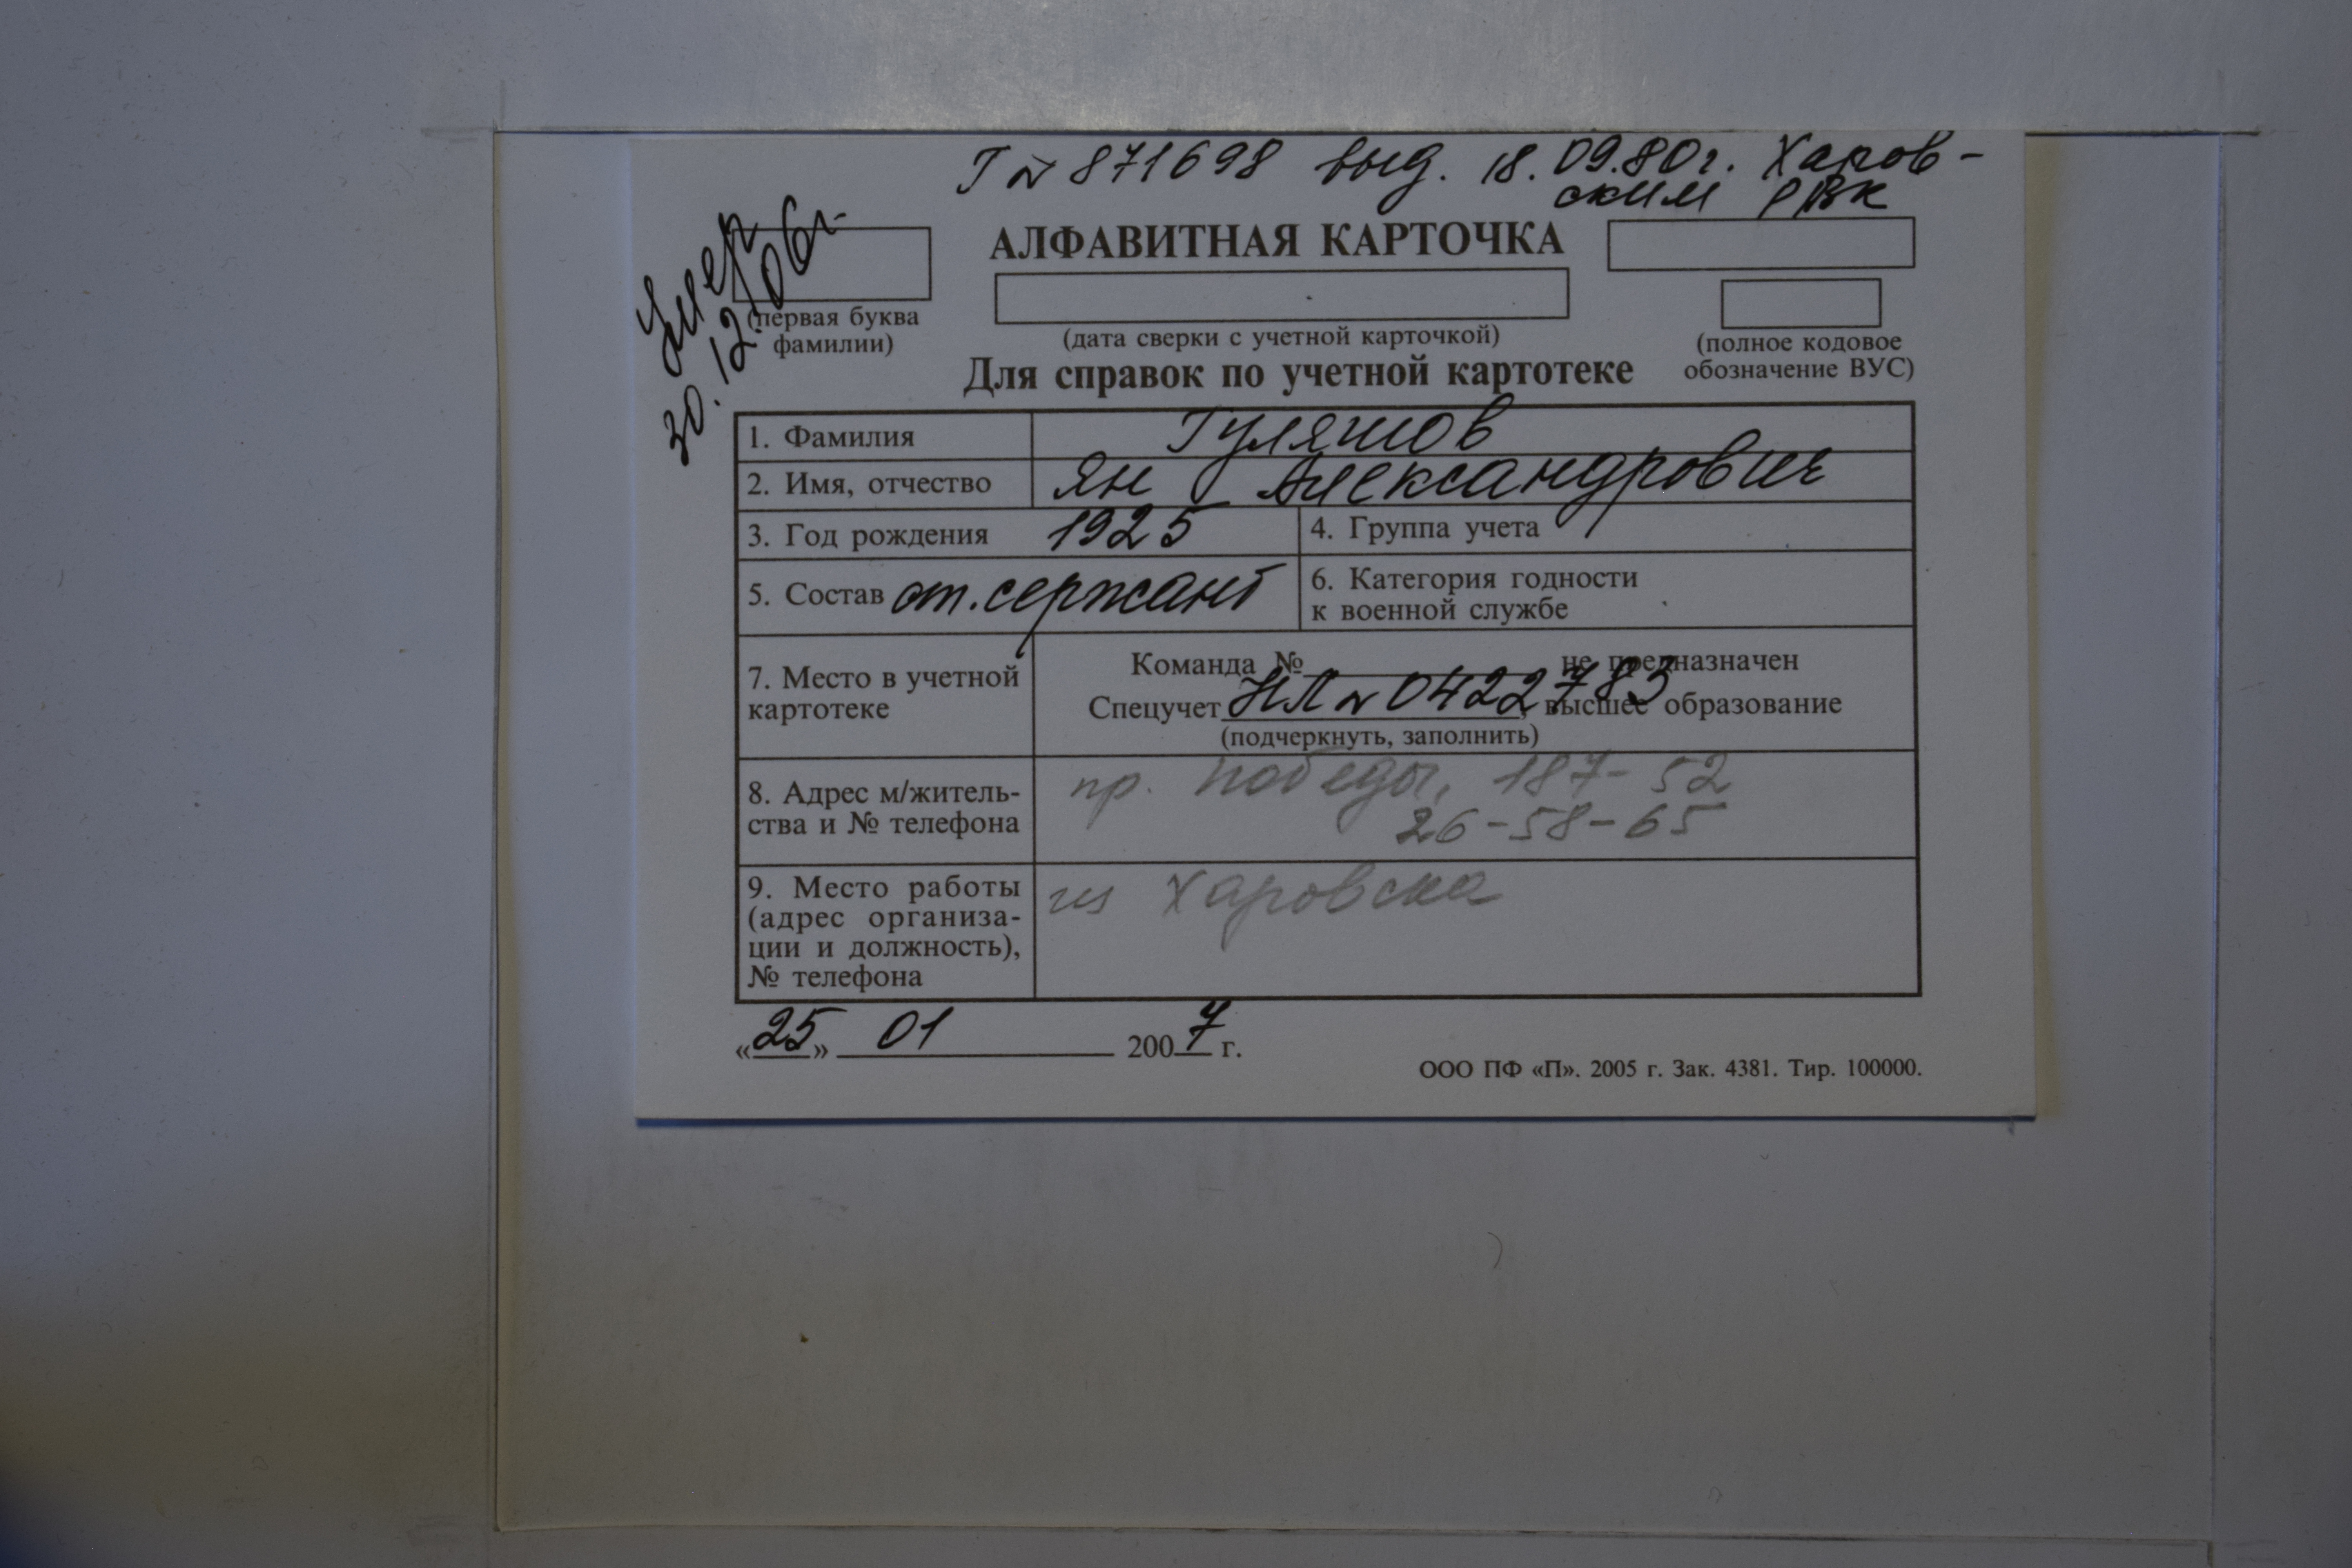 Г № 871698 выд. 18.09.80г. Харов-
ским РВК
Умер
30.12.06г.
АЛФАВИТНАЯ КАРТОЧКА
(первая буква
фамилии)
(дата сверки с учетной карточкой)
(полное кодовое
обозначение ВУС)
Для справок по учетной картотеке
1. Фамилия Гуляшов
2. Имя, отчество Ян Александрович
3. Год рождения 1925
4. Группа учета
5. Состав ст. сержант
6. Категория годности
к военной службе
7. Место в учетной
картотеке
Команда № не предназначен
Спецучет НЛ № 0422783, высшее образование
(подчеркнуть, заполнить)
8. Адрес м/житель-
ства и № телефона
пр. Победы, 187-52
26-58-65
9. Место работы
(адрес организа-
ции и должность),
№ телефона
из Харовска
«25» 01 2007 г.
ООО ПФ «П». 2005 г. Зак. 4381. Тир. 100000.